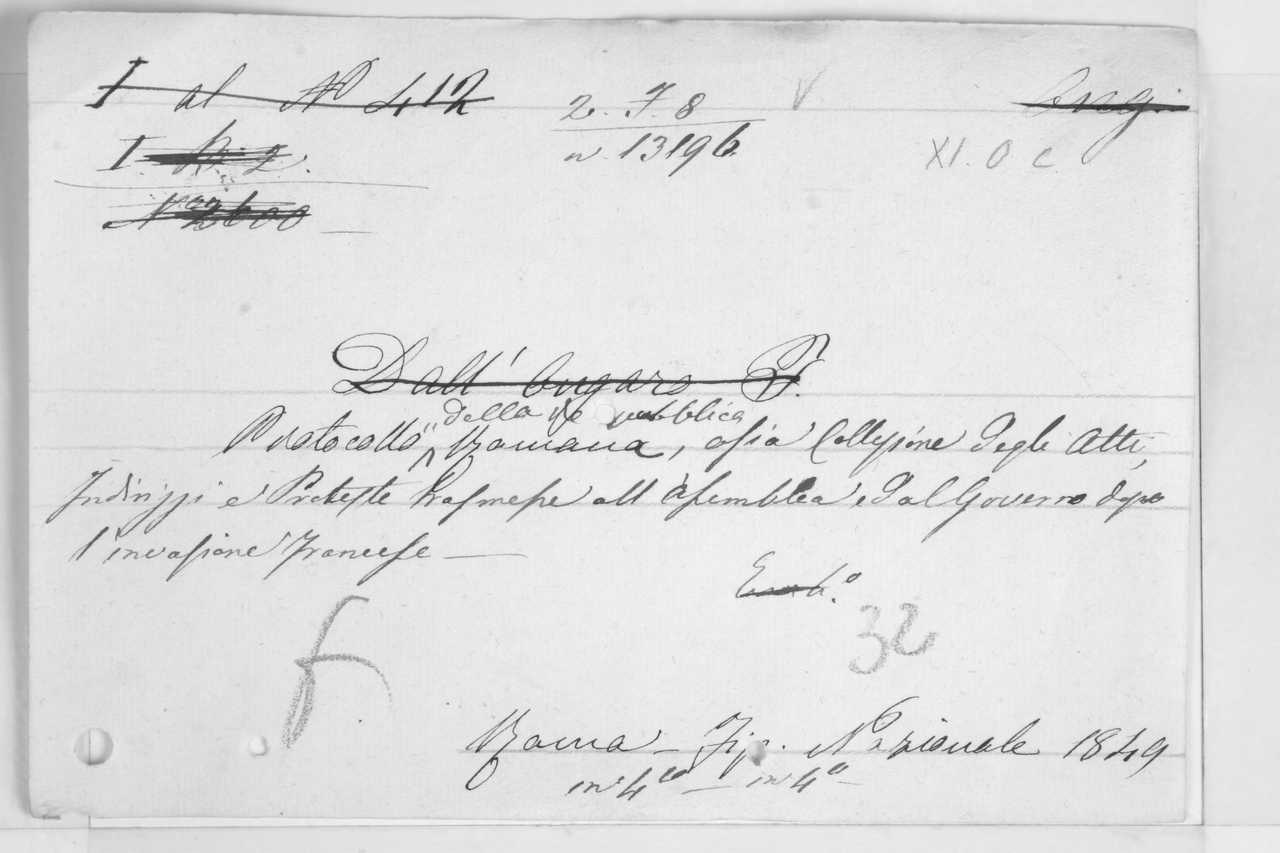 I al N° 412
2. F. 8
n. 13196
XI. O C.
I N. 2.
N° 2600
Dall' Ongaro F.
della Repubblica
Protocollo Romana, ossia Collezione degli Atti,
Indirizzi e Proteste trasmesse all' Assemblea e dal Governo dopo
l'invasione Francese —
32
f
Roma — Tip. Nazionale 1849
in 4to — in 4° —